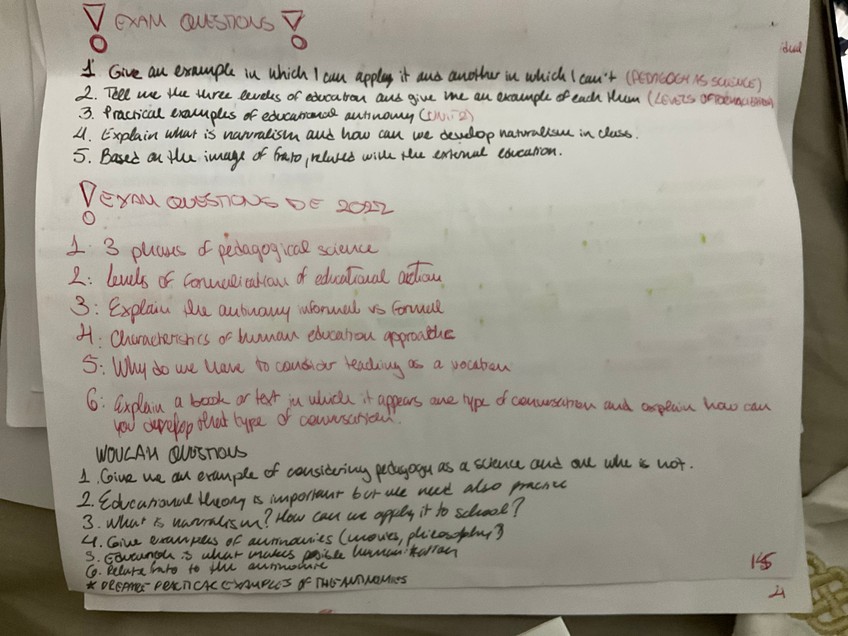 ! EXAM QUESTIONS !
idual
1. Give an example in which I can apply it and another in which I can't (PEDAGOGY AS SCIENCE)
2. Tell me the three levels of education and give me an example of each them (LEVELS OF FORMALIZATION)
3. Practical examples of educational autinomy (UNIT 2)
4. Explain what is naruralism and how can we develop naturalism in class.
5. Based on the image of frato, related with the external education.
! EXAM QUESTIONS DE 2022
1: 3 phrases of pedagogical science
2: levels of formalication of educational action
3: Explain the autinamy informal vs formal
4: Characteristics of human education approache
5: Why do we have to consider teaching as a vocation
6: Explain a book or text in which it appears one type of conversation and explain how can
you develop that type of conversation.
WOUCAH QUESTIONS
1. Give me an example of considering pedagogy as a science and one who is not.
2. Educational theory is important but we need also practice
3. What is naruralism? How can we apply it to school?
4. Give examples of autinomies (movies, philosophy?)
5. Education is what makes posible humanization
6. Relate frato to the autinomie
* PREPARE PRACTICAL EXAMPLES OF THE AUTINOMIES